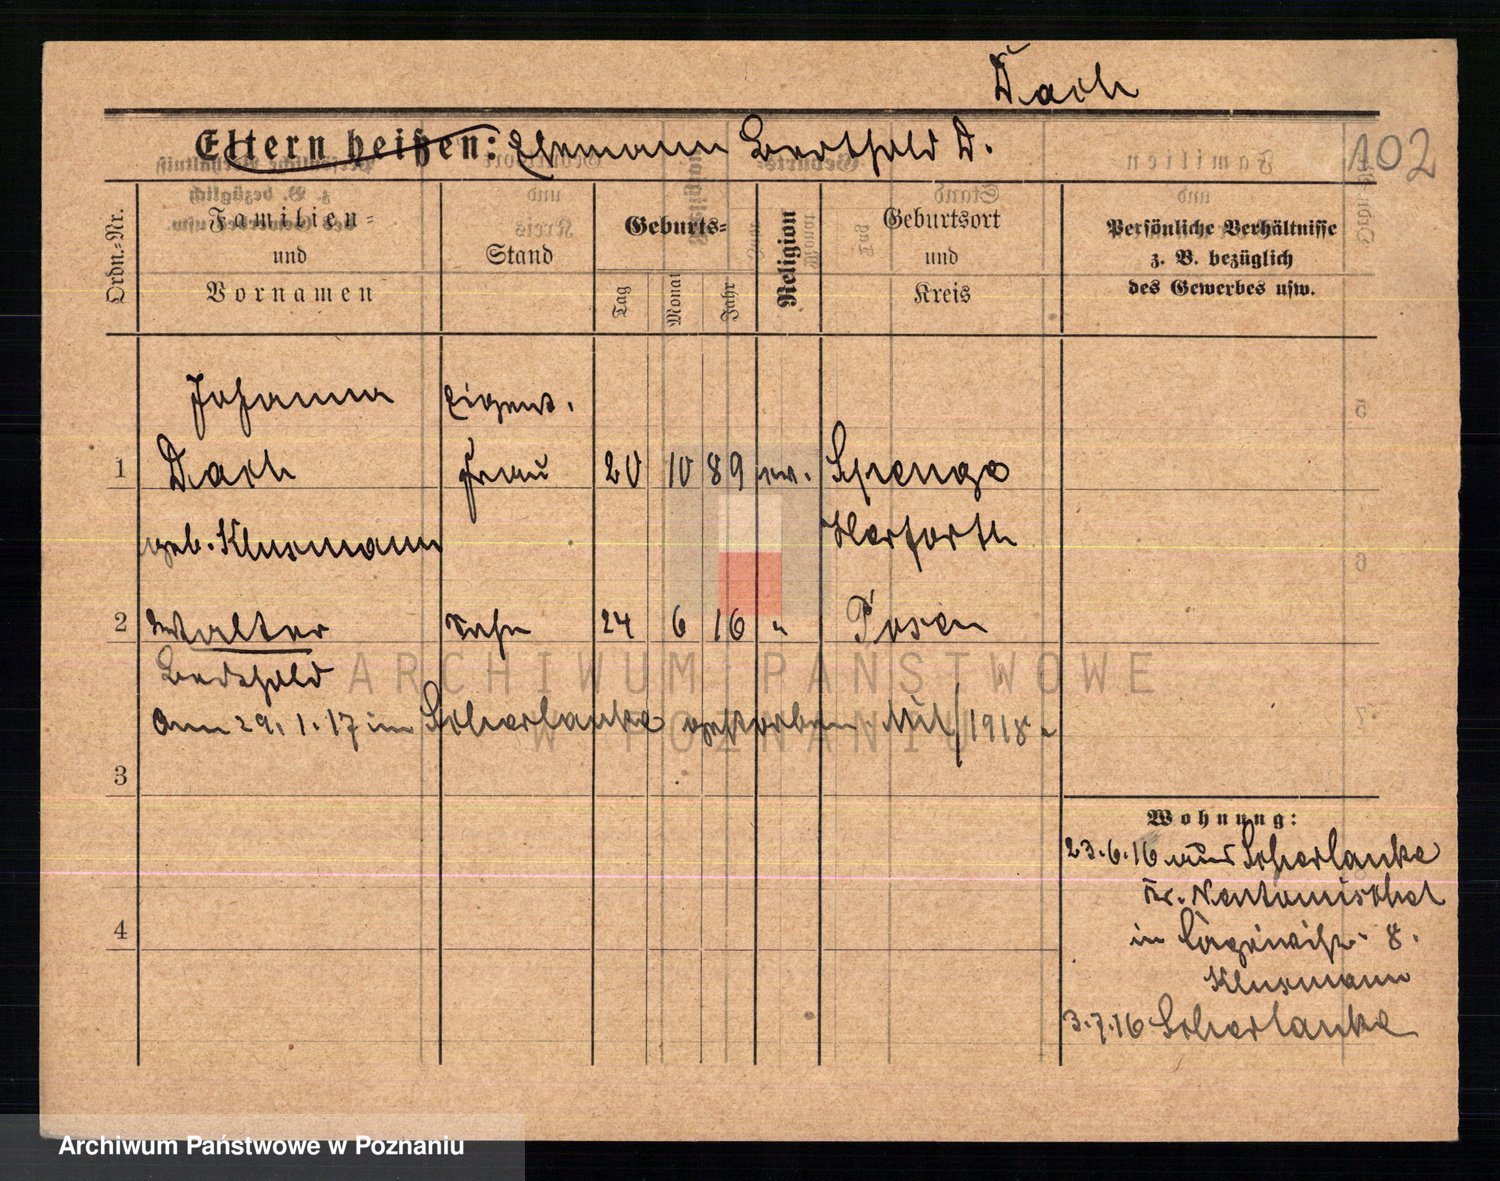 Dach
Eltern heißen: Ehemann Berthold D.
102
Ordn.-Nr.
Familien-
und
Vornamen
Stand
Geburts-
Tag
Monat
Jahr
Religion
Geburtsort
und
Kreis
Persönliche Verhältnisse
z. B. bezüglich
des Gewerbes usw.
Johanna Eigent.
1 Dach Frau 20 10 89 ev. Spenge
geb. Klusmann Herforth
2 Walter Sohn 24 6 16 " Posen
Berthold
am 29.1.17 in Scherlanke gestorben. /1918.
3
4
Wohnung:
23.6.16 aus Scherlanke
Kr. Neutomischel
in 8.
Klusmann
3.7.16 Scherlanke
ARCHIWUM PAŃSTWOWE
W POZNANIU
Archiwum Państwowe w Poznaniu